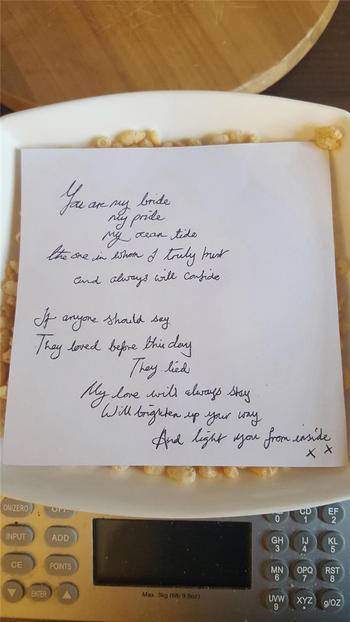 You are my bride
my pride
my ocean tide
the one in whom I truly trust
and always will confide
If anyone should say
They loved before this day
They lied
My love will always stay
Will brighten up your way
And light you from inside
x x
ON/ZERO OFF
INPUT ADD
CE POINTS
ENTER
Max. 3kg (6lb 9.8oz)
0 CD 1 EF 2
GH 3 IJ 4 KL 5
MN 6 OPQ 7 RST 8
UVW 9 XYZ g/OZ